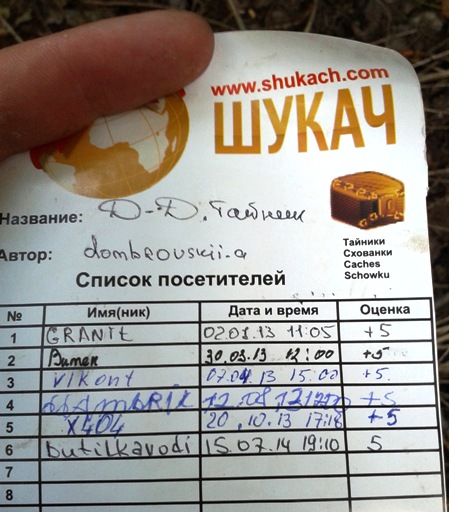 www.shukach.com
ШУКАЧ
Название: Д-Д. Тайник
Тайники
Схованки
Caches
Schowku
Автор: dombrovskii-a
Список посетителей
№ Имя(ник) Дата и время Оценка
1 GRANIt 02.01.13 11:05 +5
2 Витек 30.03.13 12:00 +5
3 Vikont 07.04.13 15:00 +5
4 12.08.13 +5
5 X404 20.10.13 17:18 +5
6 butilkavodi 15.07.14 19:10 5
7
8